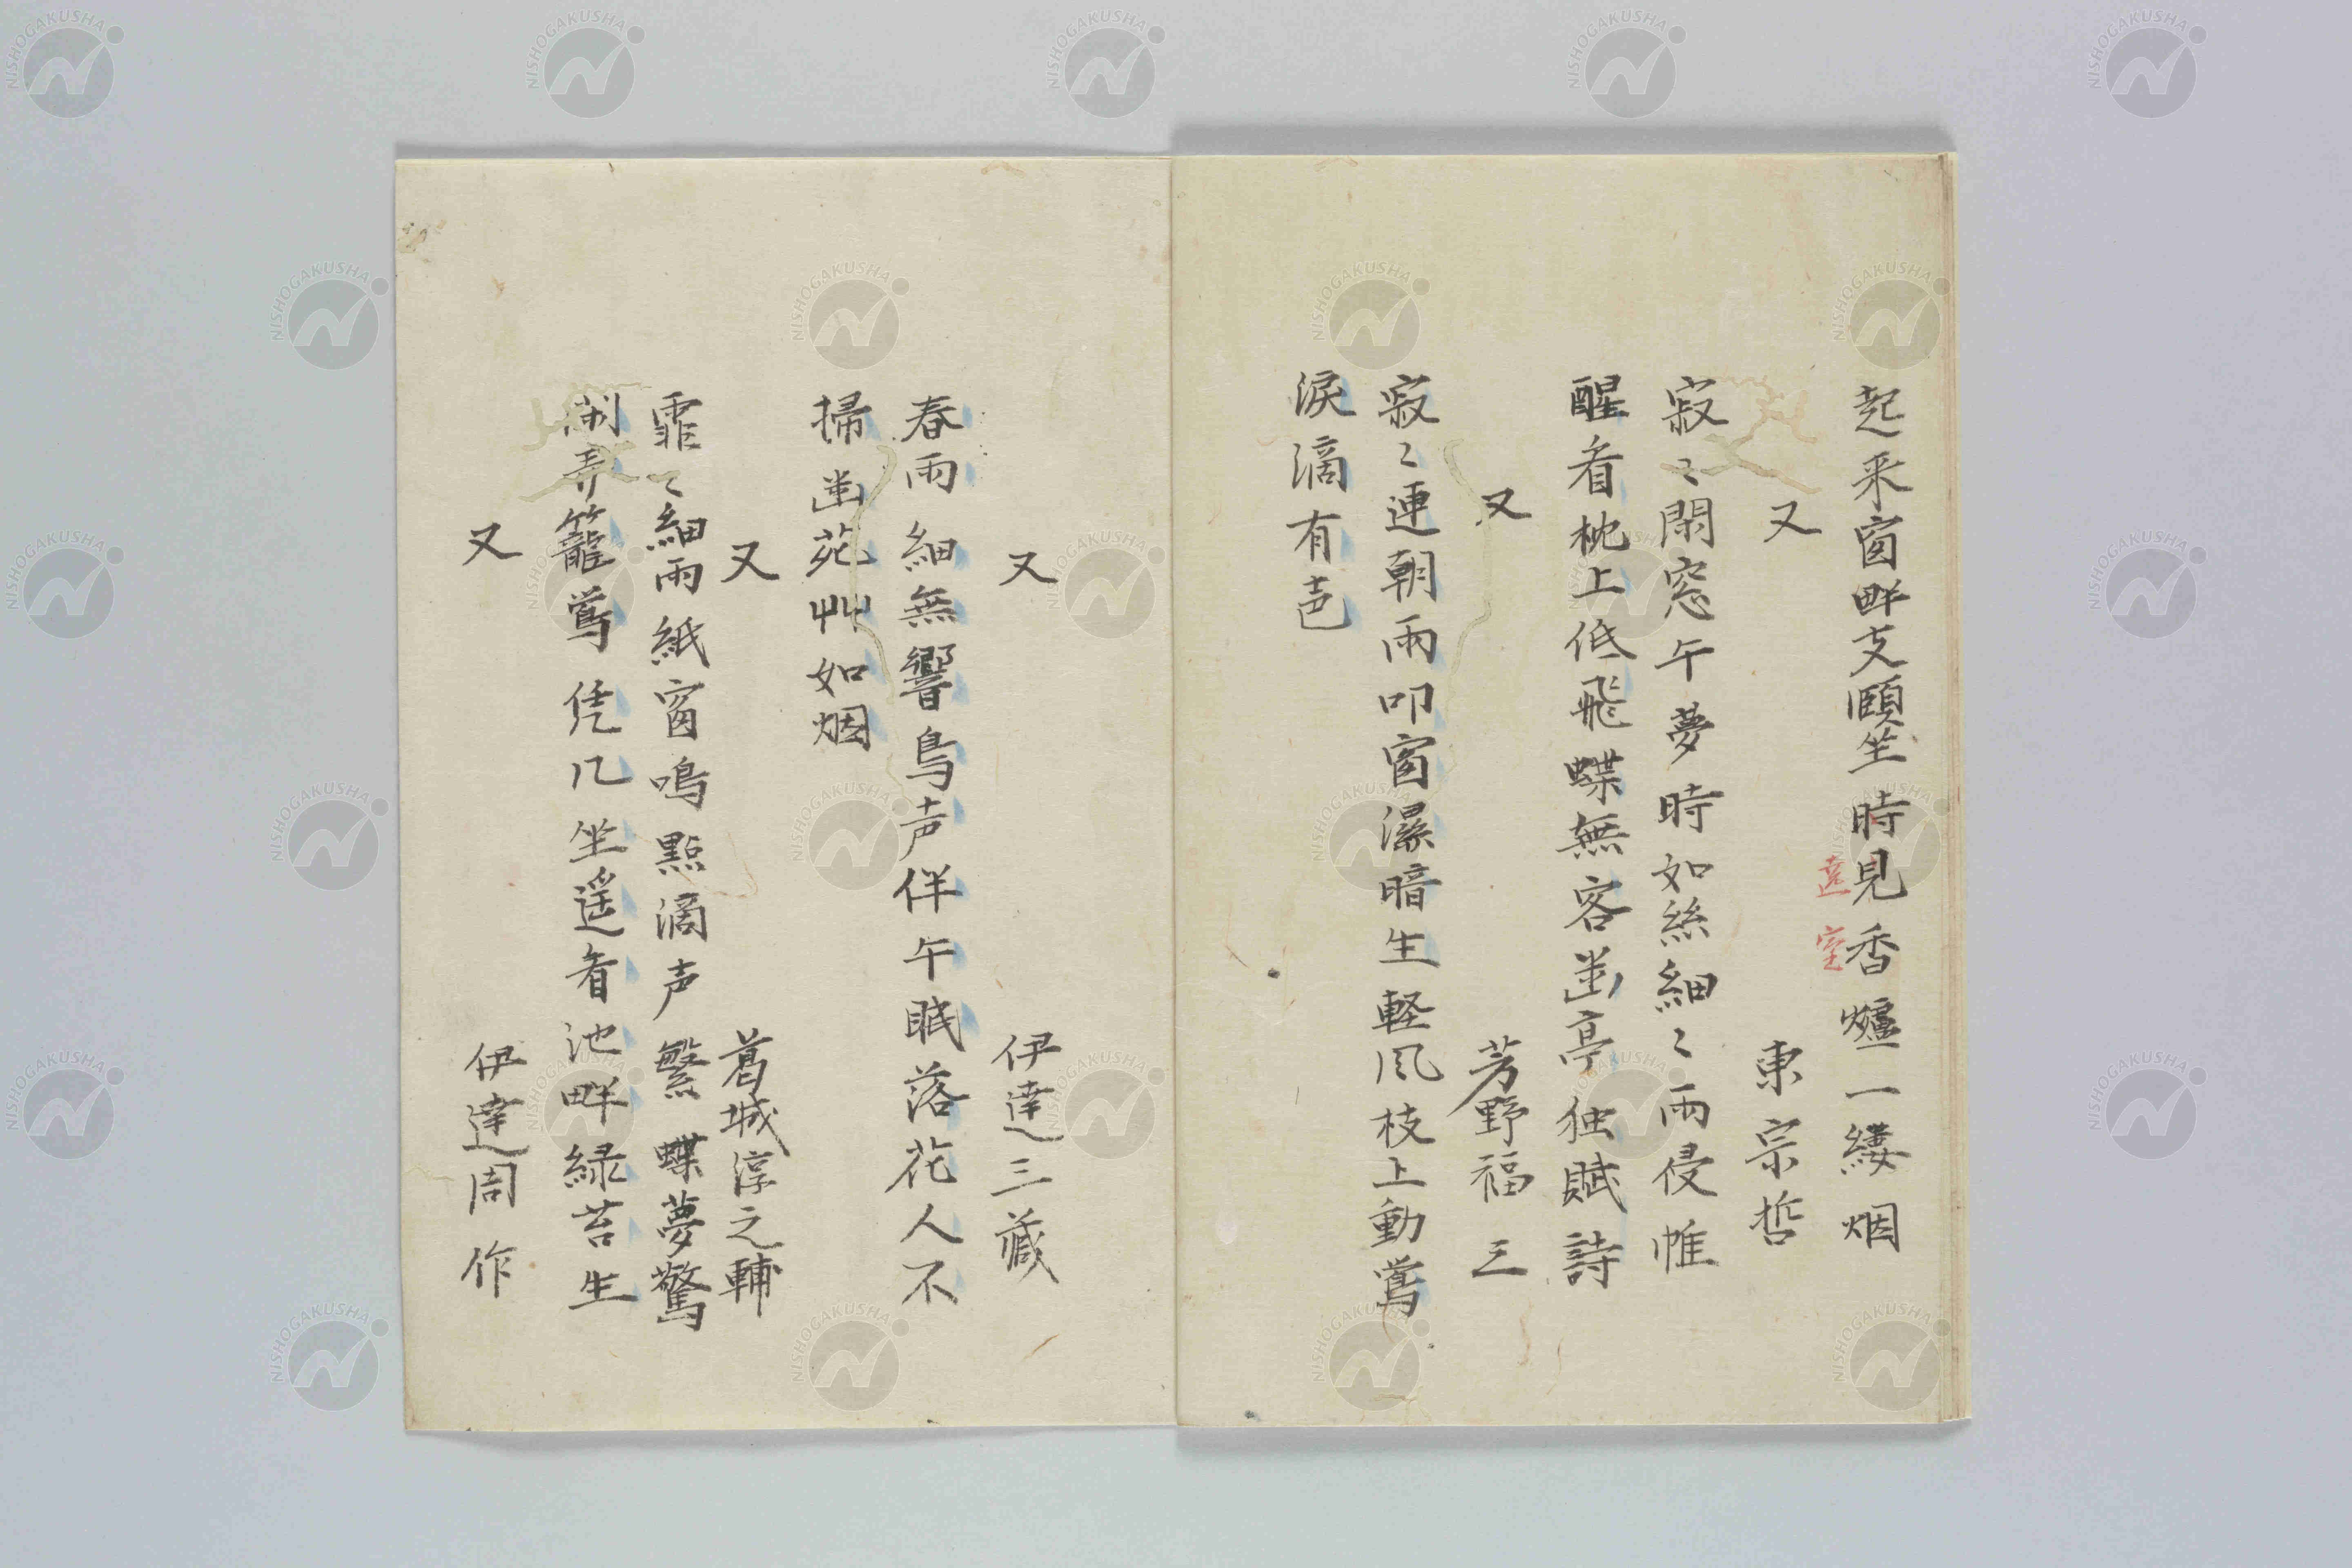 起来窗畔支頤坐時見香爐一縷烟
遠室
又　東宗哲
寂〻閑窓午夢時如絲細〻雨侵帷
醒看枕上低飛蝶無客幽亭独賦詩
又　芳野福三
寂〻連朝雨叩窗濕暗生軽风枝上動鶯
涙滴有声
又　伊達三蔵
春雨細無響鳥声伴午眠落花人不
掃幽苑艸如烟
又　葛城淳之輔
霏〻細雨紙窗鳴點滴声繁蝶夢驚
閑弄籠鶯凭几坐遥看池畔緑苔生
又　伊達周作
NISHOGAKUSHA